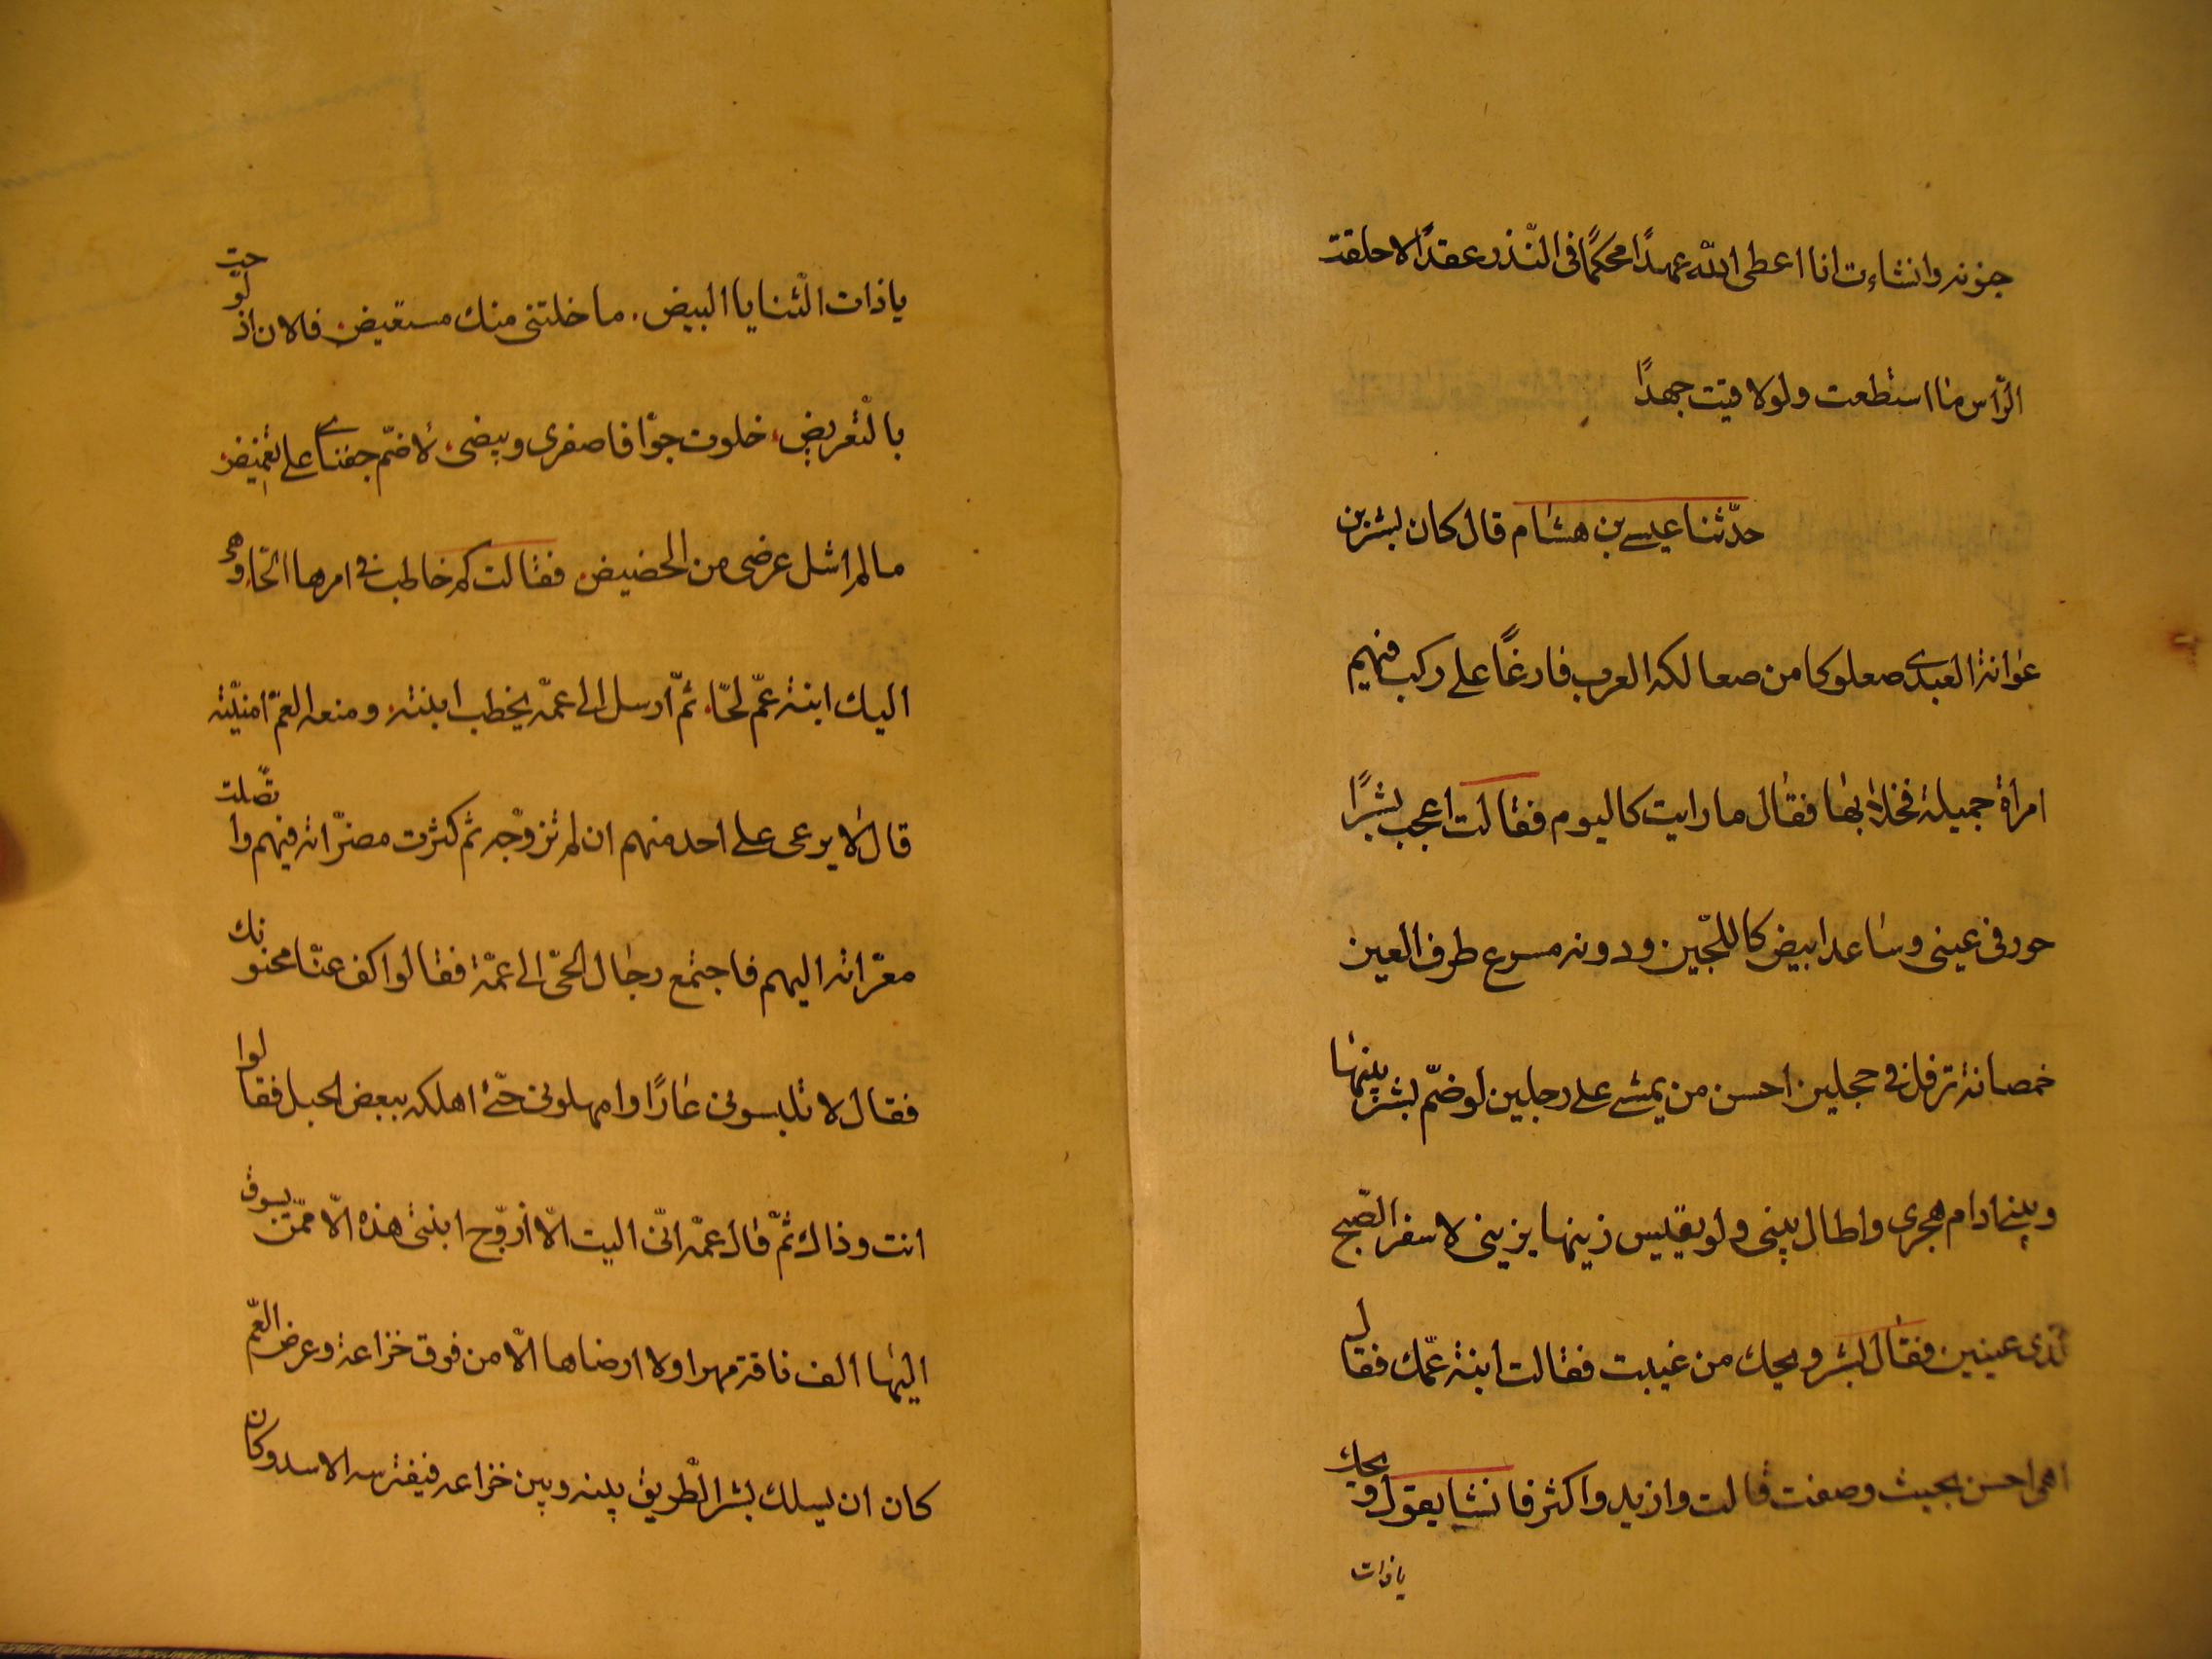 جزونه وانشاءت انا اعطى الله عهدًا محكمًا فى النّذر عقدًا لا حلقت
الرّاس ما استطعت ولو لاقيت جهدًا
حدّثنا عيسى بن هشام قال كان بشر بن
عوانة العبدى صعلوكا من صعالكة العرب فاغارغًا على ركب فيهم
امراة جميلة فخلا بها فقال ما رايت كاليوم فقالت اعجب بشرًا
حور فى عينى وساعد ابيض كاللّجين ودونه مسرع طرف العين
خمصانة ترفل فى حجلين احسن من يمشى على رجلين لو ضمّ بشر بينها
وبينى دام هجرى واطال بينى ولو يقيس زينها بزينى لاسفر الصّبح
لذى عينين فقال بشر ويحك من غيبت فقالت ابنة عمّك فقال
اهى احسن بحيث وصفت قالت وازيد واكثر فانشا يقول ويحك
ياذات
ياذات الثنايا البيض . ما خلتنى منك مستعيض . فالان اذ لوّحت
بالتّعريض . خلوت جوّا فاصفرى وبيضى . لاضمّ جفناى على تغميض .
ما لم اشل عرضى من الحضيض . فقالت كم خاطب فى امرها الحّا وهى
اليك ابنة عمّ لحّا . ثمّ ارسل الى عمّه يخطب ابنته . ومنعه العمّ امنيّته
قال لا يرعى على احد منهم ان لم تزوّجه ثم كثرت مضرّاته فيهم واتّصلت
معرّاته اليهم فاجتمع رجال الحىّ الى عمّه فقالوا كف عنّا مجنونك
فقال لا تلبسونى عارًا وامهلونى حتّى اهلكه ببعض الحيل فقالوا
انت وذاك ثمّ قال عمّه انّى اليت الّا ازوّج ابنتى هذه الّا ممّن يسوق
اليها الف ناقة مهرا ولا ارضاها الّا من فوق خزاعة وغرض العمّ
كان ان يسلك بشر الطّريق بينه وبين خزاعه فيفترسه الاسد وكان